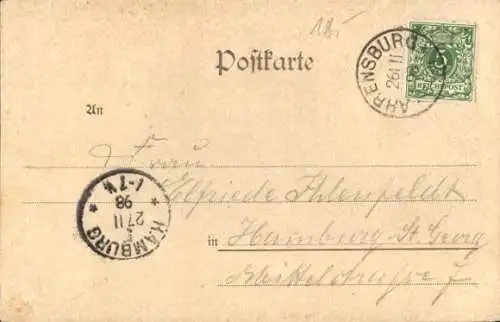 18.-
Postkarte
AHRENSBURG
26/11
5
REICHSPOST
An
Frau
Elfriede Ihlenfeldt
in Hamburg St. Georg
Mittelstrasse 7
HAMBURG
27 11
98
1-7 ½